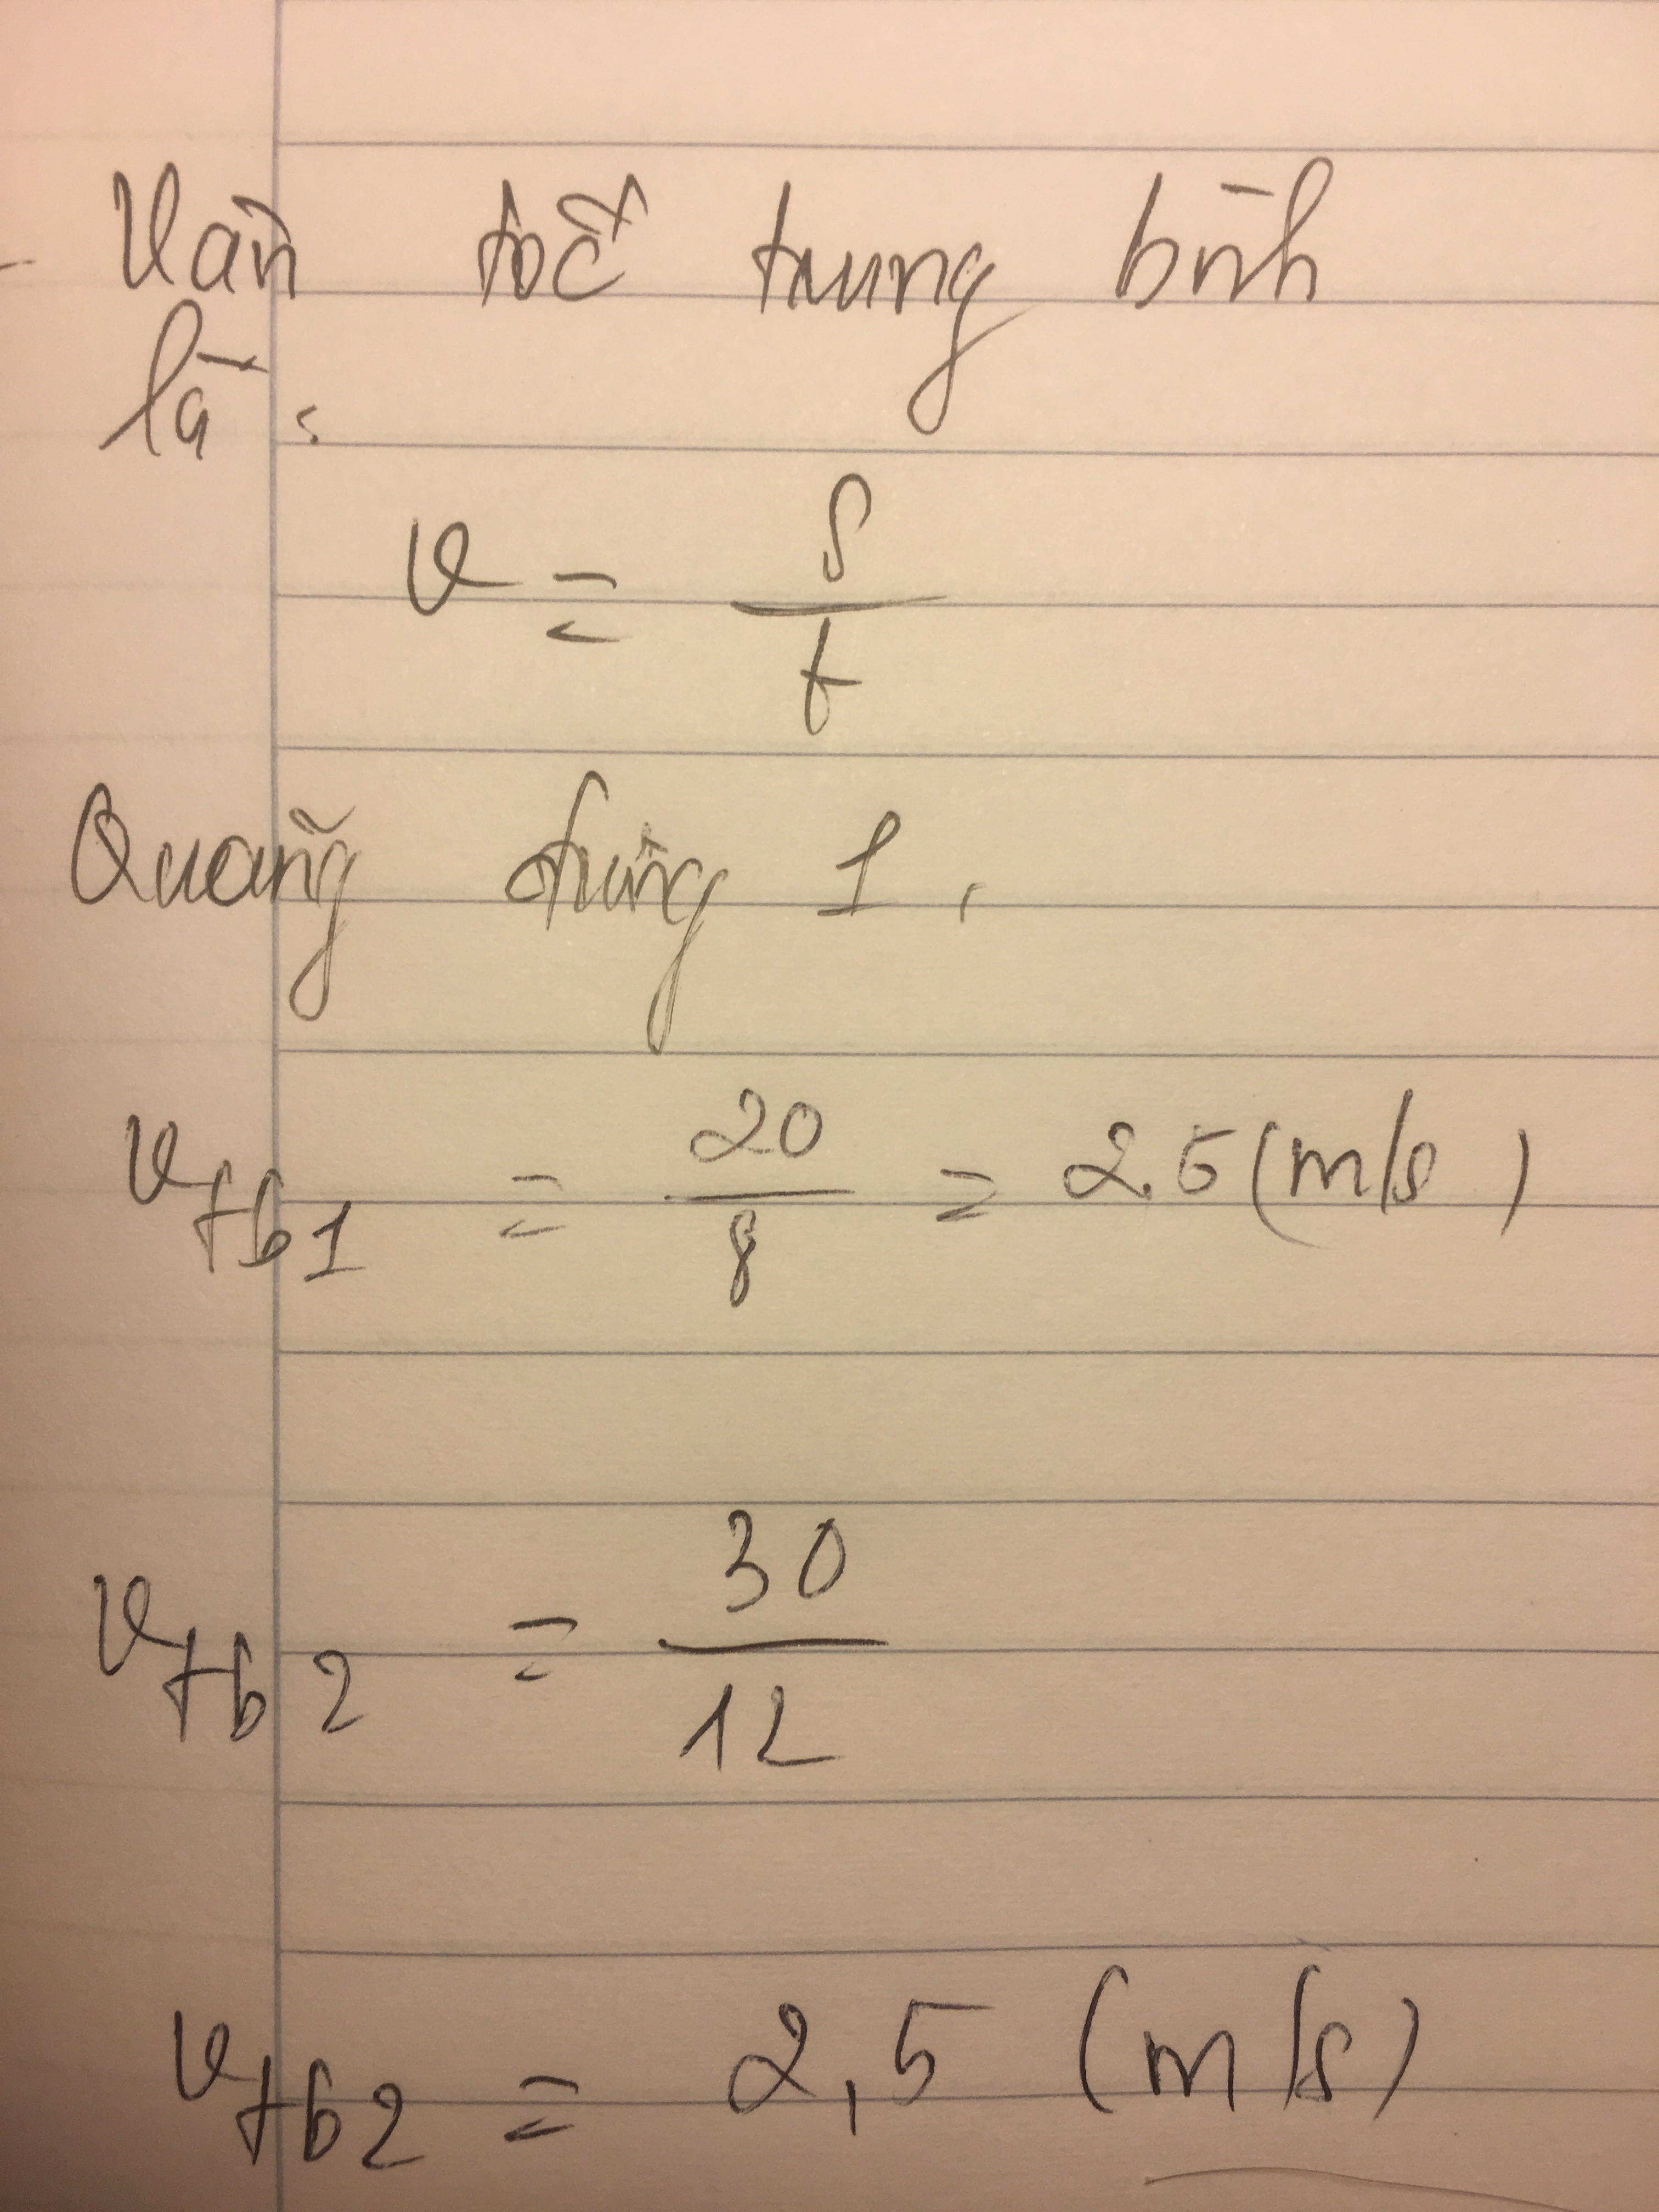 - Vận tốc trung bình
là :
v = S / t
Quãng đường 1 .
vtb1 = 20 / 8 = 2.5 (m/s)
vtb2 = 30 / 12
vtb2 = 2,5 (m/s)